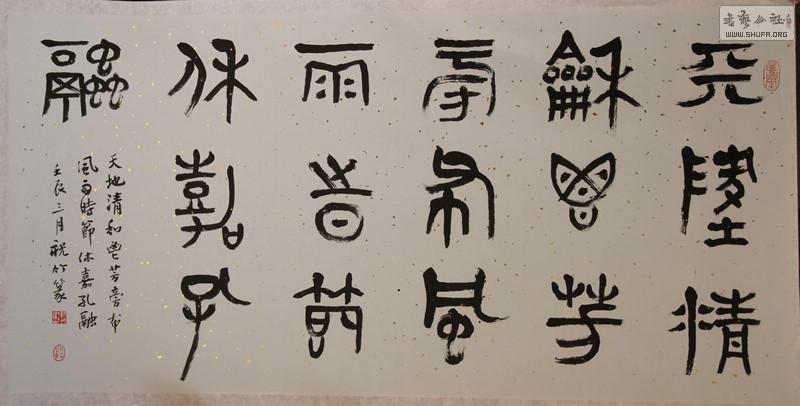 天地清
和鬯芳
旁布風
雨時節
休嘉孔
融
天地清和鬯芳旁布
風雨時節休嘉孔融
壬辰三月祝竹篆
书艺公社
WWW.SHUFA.ORG